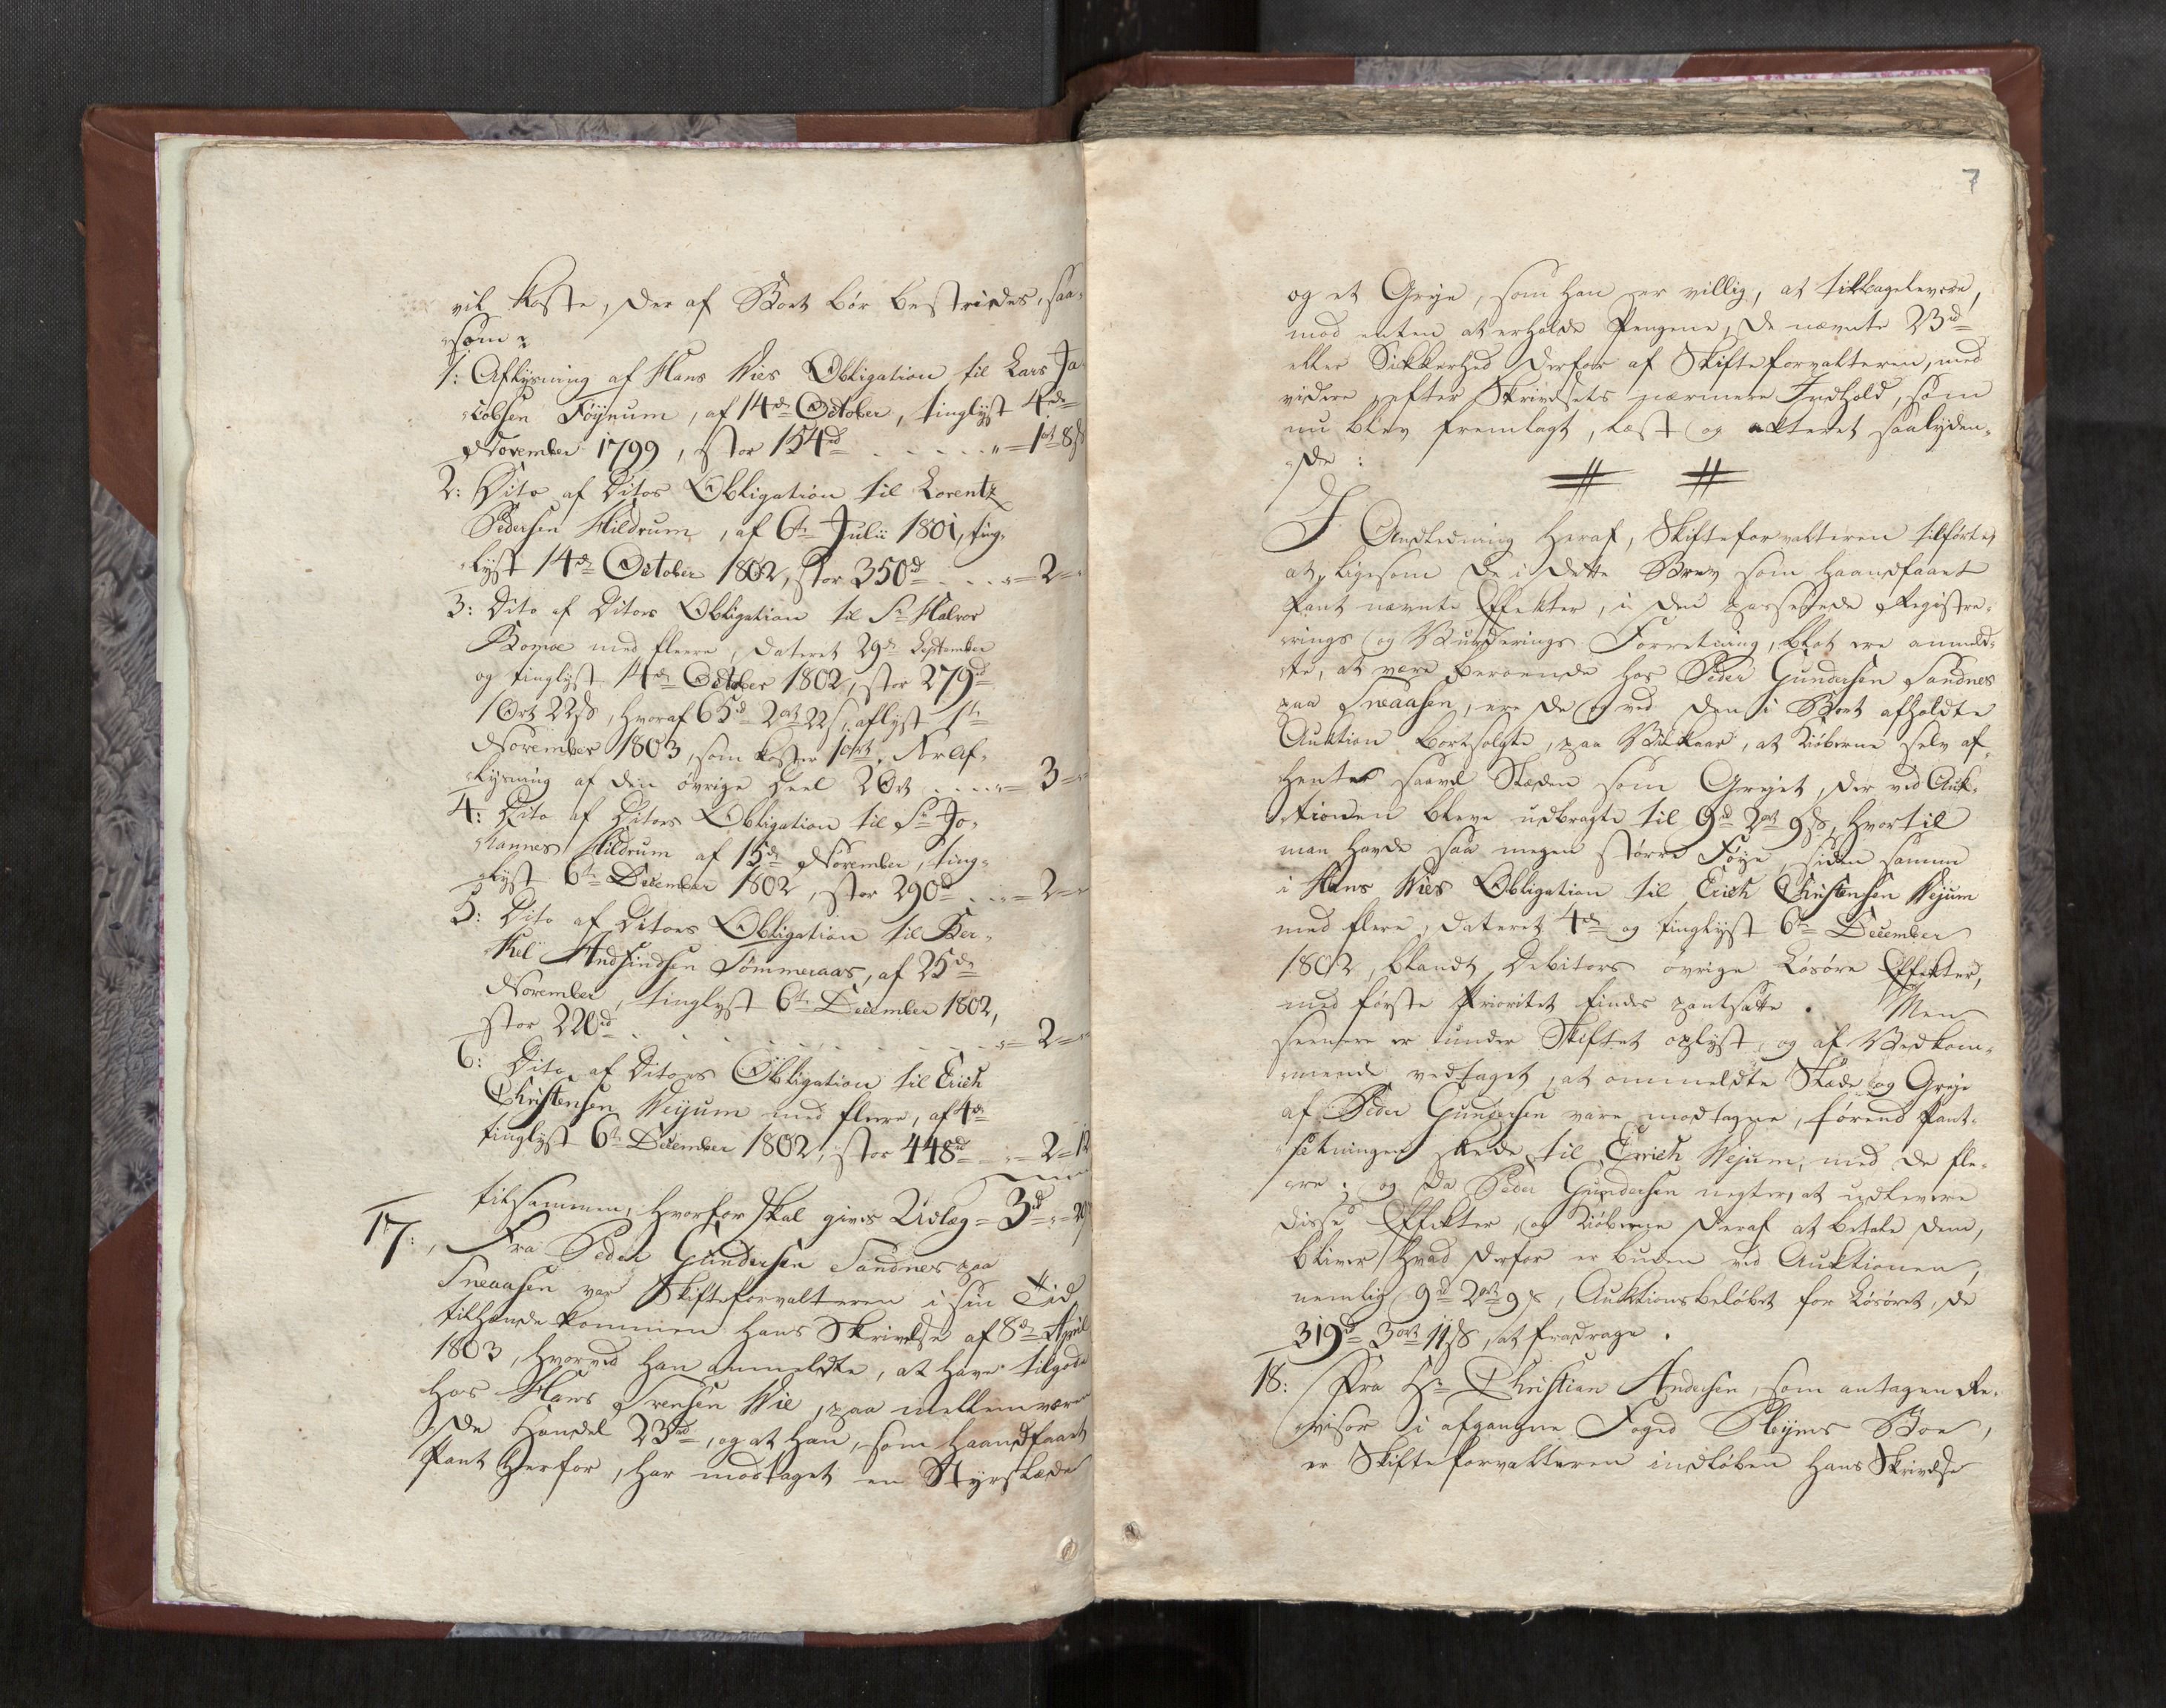 vil koste, der af Boet bør bestriedes, saa-
som:
1: Aflysning af Hans Vies Obligation til Lars Ja-
cobsen Föÿnum, af 14de October, tinglyst 4de
November 1799, stor 154rd . . . . . „ = 1ort 8s
2: Dito af Ditos Obligation til Lorentz
Pedersen Hildrum, af 6te Julii 1801, ting-
lyst 14de October 1802, stor 350rd . . . „ = 2 = „
3: Dito af Ditoes Obligation til Sr Halvor
med fleere, dateret 29de September
og tinglyst 14de October 1802, stor 279rd
1 Ort 22s, hvoraf 65rd 2ort 22s, aflyst 1te
November 1803, som koster 1ort. For Af-
lysning af den øvrige Deel 2 Ort . . . . „ = 3 = „
4: Dito af Ditoes Obligation til Sr Jo-
hannes Hildrum af 15de November, ting-
lyst 6te December 1802, stor 290rd . . „ = 2 = „
5: Dito af Ditoes Obligation til Ber-
Andfindsen Tömmeraas, af 25de
November, tinglyst 6te December 1802,
stor 220rd . . . . . . . . . . „ = 2 = „
6: Dito af Ditoes Obligation til Erich
Christensen Vejum med fleere, af 4de
tinglyst 6te December 1802, stor 448rd „ = 2 = 12
tilsammen, hvorfor skal gives Udlæg = 3rd „ = 20s
17: Fra Peder Gundersen Sandnes paa
Sneaasen var Skifteforvalteren i sin Tid
tilhænde kommen hans Skrivelse af 8de April
1803, hvorved han anmeldte, at have tilgode
hos Hans Vie, paa mellemværen-
de Handel 23rd, og at han, som haandfaaet
Pant herfor, har modtaget en Styrslæde
7
og et Greje, som han er villig, at tilbagelevere,
mod enten at erholde Pengene, de nævnte 23rd
eller Sikkerhed derfor af Skifteforvalteren, med
videre efter Skrivelsets nærmere Indhold, som
nu blev fremlagt, læst og acteret saalyden-
de:
# #
I Anledning heraf, Skifteforvalteren tilførte,
at ligesom de i dette Brev som haandfaaet
Pant nævnte Effecter, i den passerede Registre-
rings og Vurderings Forretning, blot ere anmeld-
te, at være beroende hos Peder Gundersen Sandnes
paa Sneaasen, ere de og ved den i Boet afholdte
Auktion bortsolgte, paa Vilkaar, at Kiøberne selv af-
henter saavel Slæden som Grejet, der ved Auk-
tionen bleve udbragte til 9rd 2ort 9s, hvortil
man havde saa megen større Föye, siden samme
i Hans Vies Obligation til Erich Christensen Vejum
med flere, dateret 4de og tinglyst 6te December
1802, blandt Debitors övrige Løsøre Effecter,
med første Prioritet findes pantsatte. Men
seenere er under Skiftet oplyst, og af Vedkom-
mende vedtaget, at ommeldte Slæde og Greje
af Peder Gundersen vare modtagne, förend Pant-
sætningen skede til Errich Vejum, med de fle-
re; og da Peder Gundersen negter, at udlevere
disse Effecter, og Kiøberne deraf at betale dem,
bliver hvad derfor er buden ved Auktionen,
nemlig 9rd 2ort 9s, Auktionsbeløbet for Løsøret, de
319rd 3ort 11s, at fradrage.
18: Fra Hr Christian Andersen, som antagen Re-
visor i afgangne Foged Boe,
er Skifteforvalteren indløben hans Skrivelse